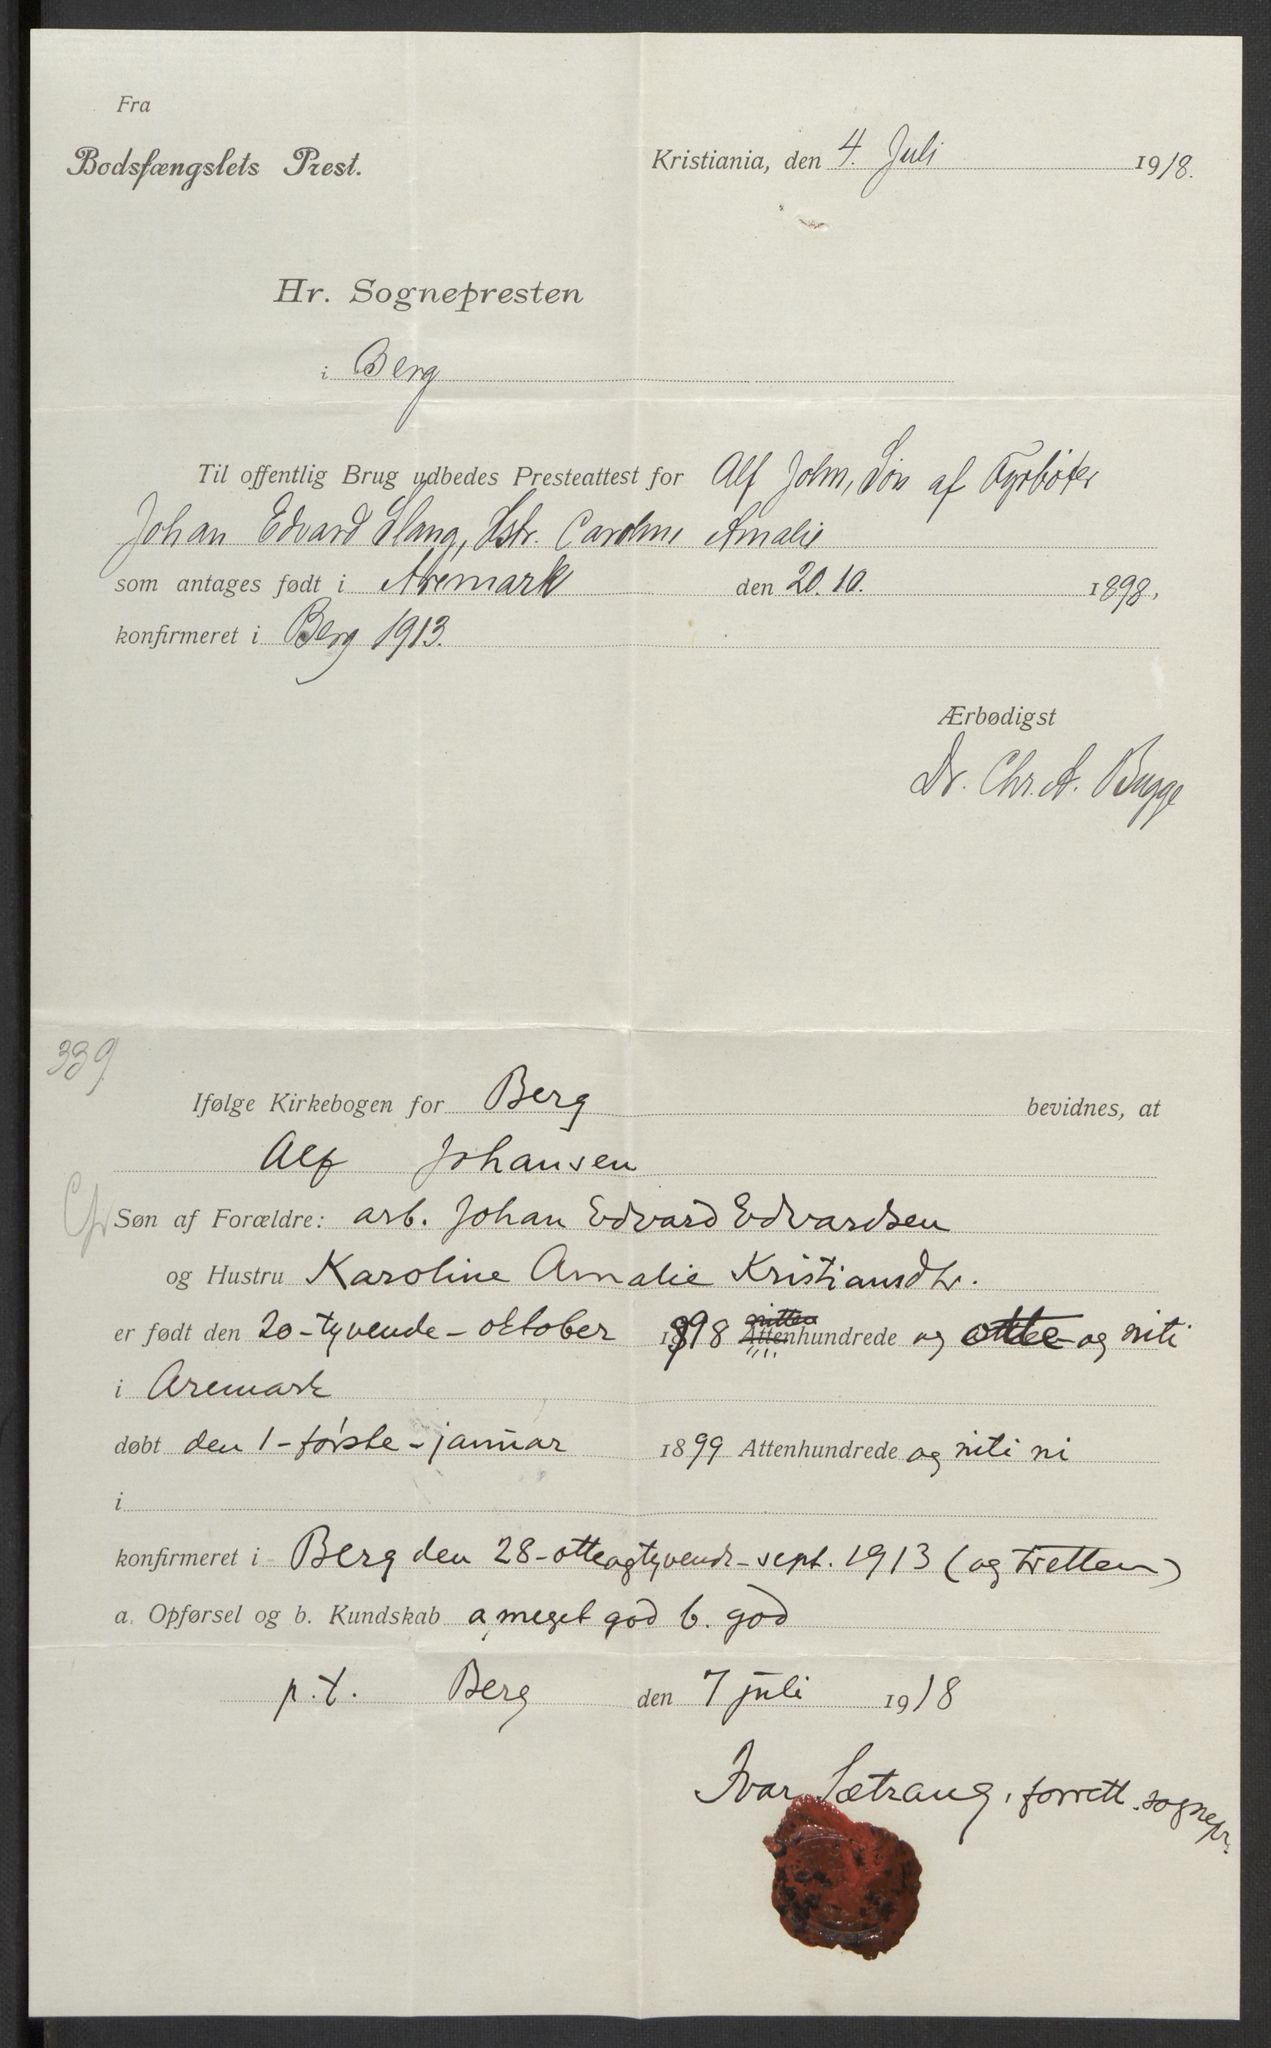 Fra
Bodsfængslets Prest.
Kristiania, den 4. Juli 1918.
Hr. Sognepresten
i Berg
Til offentlig Brug udbedes Presteattest for Alf John, Søn af Fyrbøter
Johan Edvard Slang, Hstr. Caroline Amalie
som antages født i Aremark den 20.10. 1898,
konfirmeret i Berg 1913.
Ærbødigst
Dr. Chr. A. Bugge
339
Ifølge Kirkebogen for Berg bevidnes, at
Alf Johansen
Søn af Forældre: arb. Johan Edvard Edvardsen
og Hustru Karoline Amalie Kristiansdtr.
er født den 20-tyvende-oktober 1898 Attenhundrede og otte og niti
i Aremark
døbt den 1-første-januar 1899 Attenhundrede og niti ni
i
konfirmeret i Berg den 28-otteogtyvende-sept. 1913 (og tretten)
a. Opførsel og b. Kundskab a, meget god b. god
p.t. Berg den 7 juli 1918
Ivar Sætrang, forrett. sognepr.